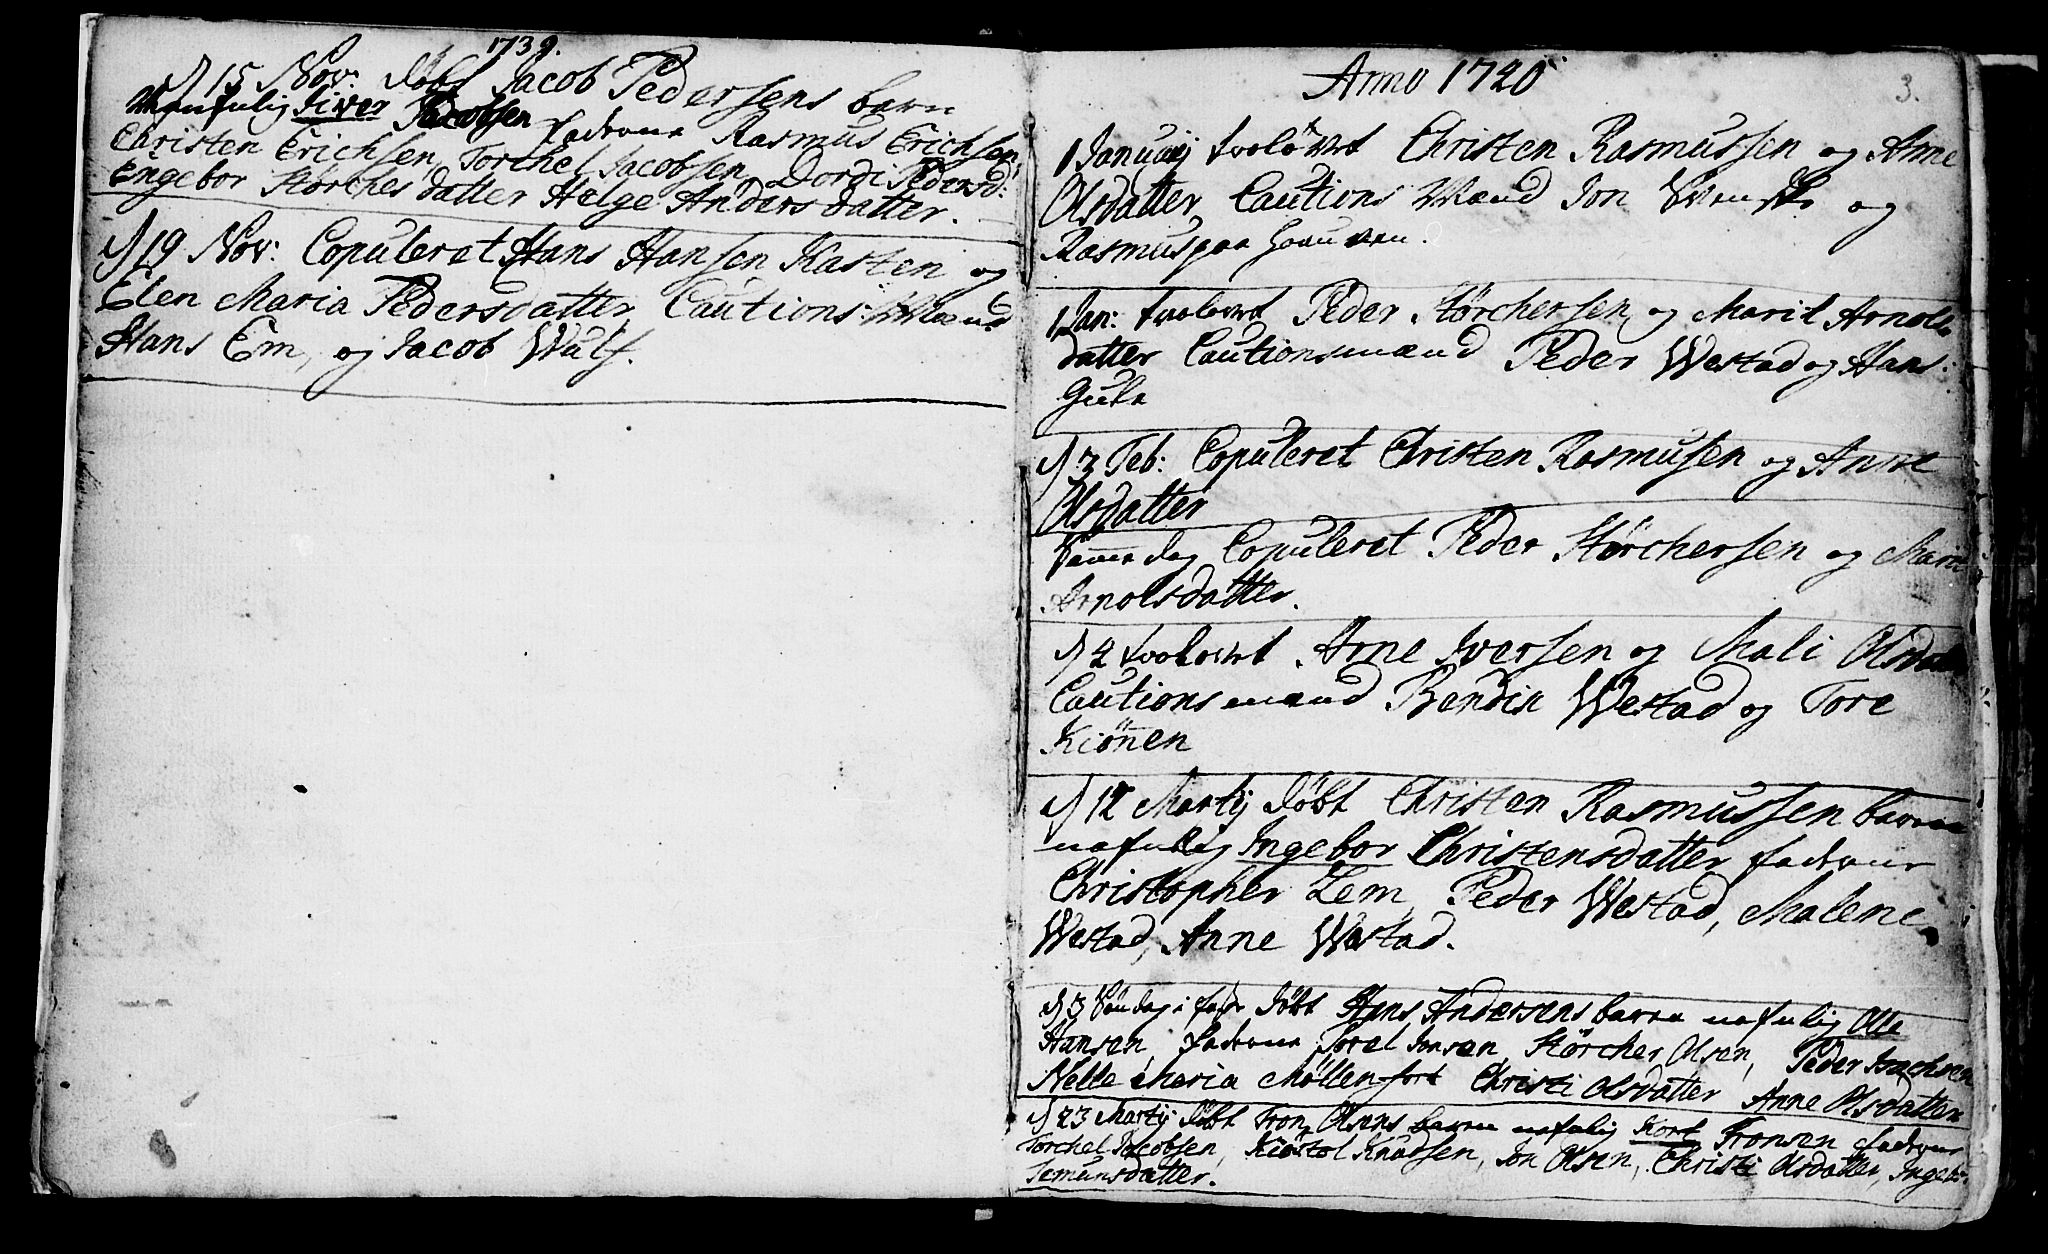 1739.
d 15 Nov: døbt Jacob Pedersens barn
nafnlig Siver Jacobsen fadrene Rasmus Erichsen,
Christen Erichsen, Torchel Jacobsen, Dordi Pedersd:
Engebor Størchesdatter Helge Andersdatter.
d 19 Nov: Copuleret Hans Hansen Kasten og
Elen Maria Pedersdatter Cautions Mænd
Hans Em, og Jacob Wulf.
Anno 1740
3.
1 January trolovet Christen Rasmussen og Anne
Olsdatter, Cautions Mænd Jon Svenske og
Rasmus paa
1 Jan: trolovet Peder Størchersen og Marit Arnols
datter Cautionsmænd Peder Westad og Hans
Gule
d 3 Feb: Copuleret Christen Rasmusen og Anne
Olsdatter
Samme dag Copuleret Peder Størchersen og Marit
Arnolsdatter.
d 2 trolovet Arne Iversen og Mali Olsdatter
Cautionsmænd Bendix Westad og Tore
Kiönen
d 12 Martij døbt Christen Rasmussens barn
nafnlig Ingebor Christensdatter, fadrene
Christopher Lem, Peder Westad, Malene
Westad, Anne Westad.
d 3 Søndag i faste døbt Hans Andersens barn nafnlig Olle
Hansen, fadrene Torel Jonsen, Størcher Olsen, Peder Isachsen
Nelle Maria Möllenfort Christi Olsdatter Anne Olsdatter
d 23 Martij døbt Tron Olsens barn nafnlig Kort Tronsen fadrene
Torchel Jacobsen, Kiöstol Knudsen, Jon Olsen, Christi Olsdatter, Ingebor
Semunsdatter.